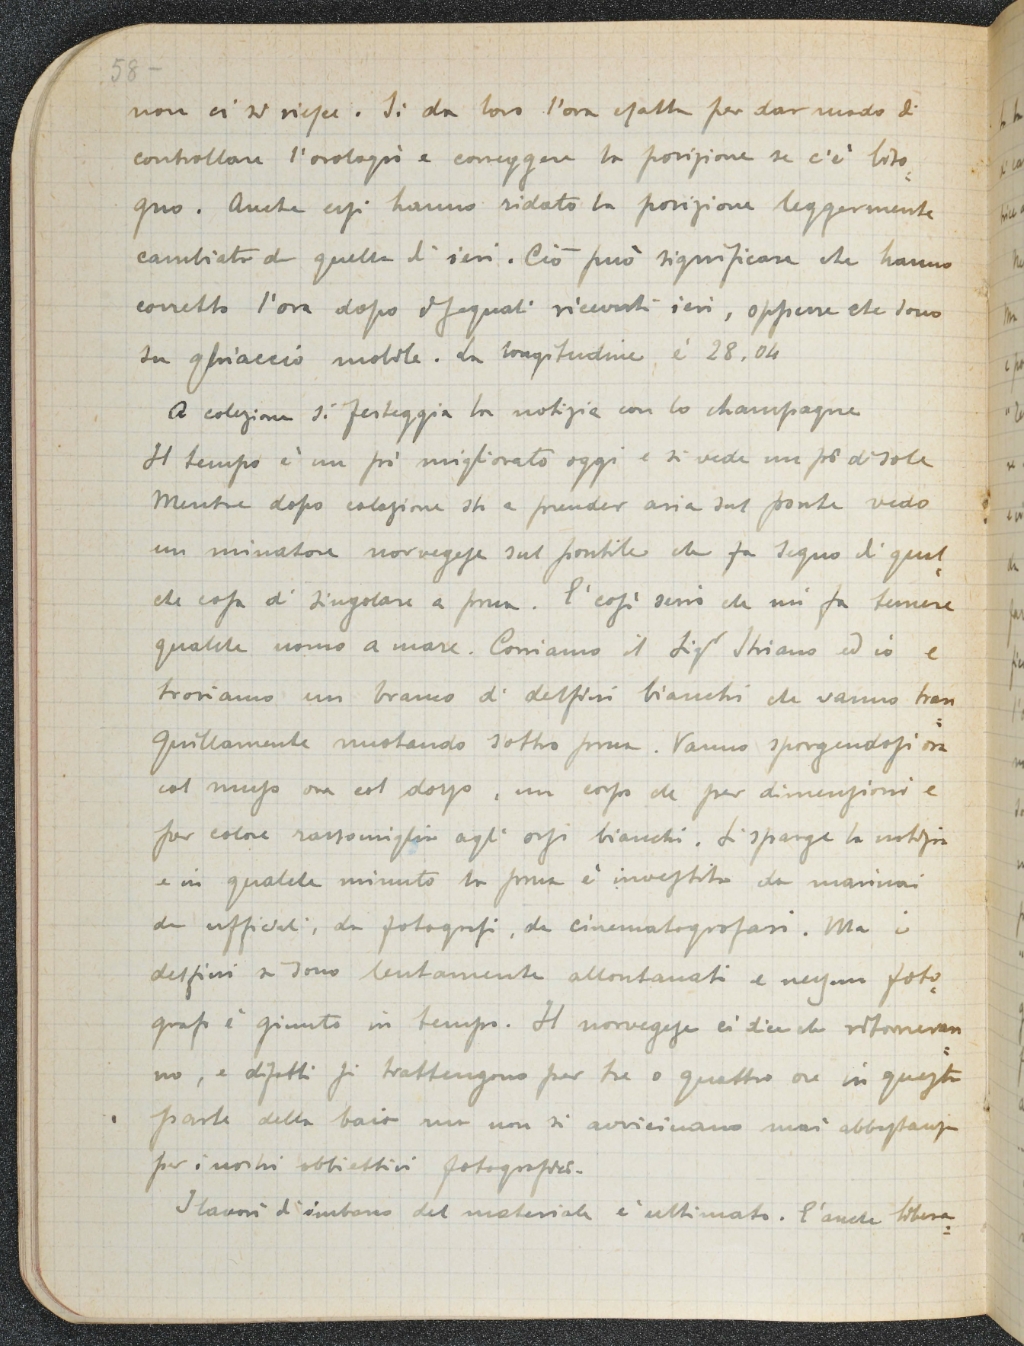 58-
non ci si riesce. Si da loro l'ora esatta per dar modo di
controllare l'orologio e correggere la posizione se c'è biso=
gno. Anche essi hanno ridato la posizione leggermente
cambiata da quella di ieri. Ciò può significare che hanno
corretto l'ora dopo i segnali ricevuti ieri, oppure che sono
su ghiaccio mobile. La longitudine è 28.04
A colazione si festeggia la notizia con lo champagne
Il tempo è un pò migliorato oggi e si vede un pò di sole
Mentre dopo colazione sto a prender aria sul ponte vedo
un minatore norvegese sul pontile che fa segno di qual=
che cosa di singolare a prua. E' così serio che mi fa temere
qualche uomo a mare. Corriamo il Sigr Striano ed io e
troviamo un branco di delfini bianchi che vanno tran=
quillamente nuotando sotto prua. Vanno sporgendosi ora
col muso ora col dorso, un corpo che per dimensioni e
per colore rassomiglia agli orsi bianchi. Si sparge la notizia
e in qualche minuto la prua è investita da marinai
da ufficiali, da fotografi, da cinematografari. Ma i
delfini si sono lentamente allontanati e nessun foto=
grafo è giunto in tempo. Il norvegese ci dice che ritorneran=
no, e difatti si trattengono per tre o quattro ore in questa
parte della baia ma non si avvicinano mai abbastanza
per i nostri obbiettivi fotografici.
I lavori di imbarco del materiale è ultimato. E' anche libera=